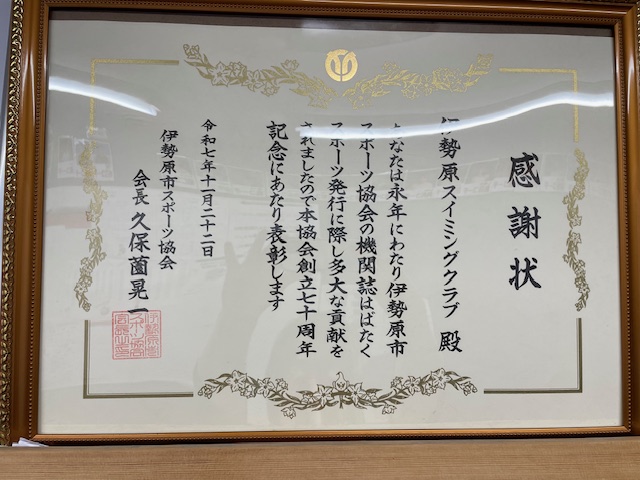 感謝状
伊勢原スイミングクラブ 殿
あなたは永年にわたり伊勢原市
スポーツ協会の機関誌はばたく
スポーツ発行に際し多大な貢献を
されましたので本協会創立七十周年
記念にあたり表彰します
令和七年十一月二十二日
伊勢原市スポーツ協会
会長 久保薗晃一